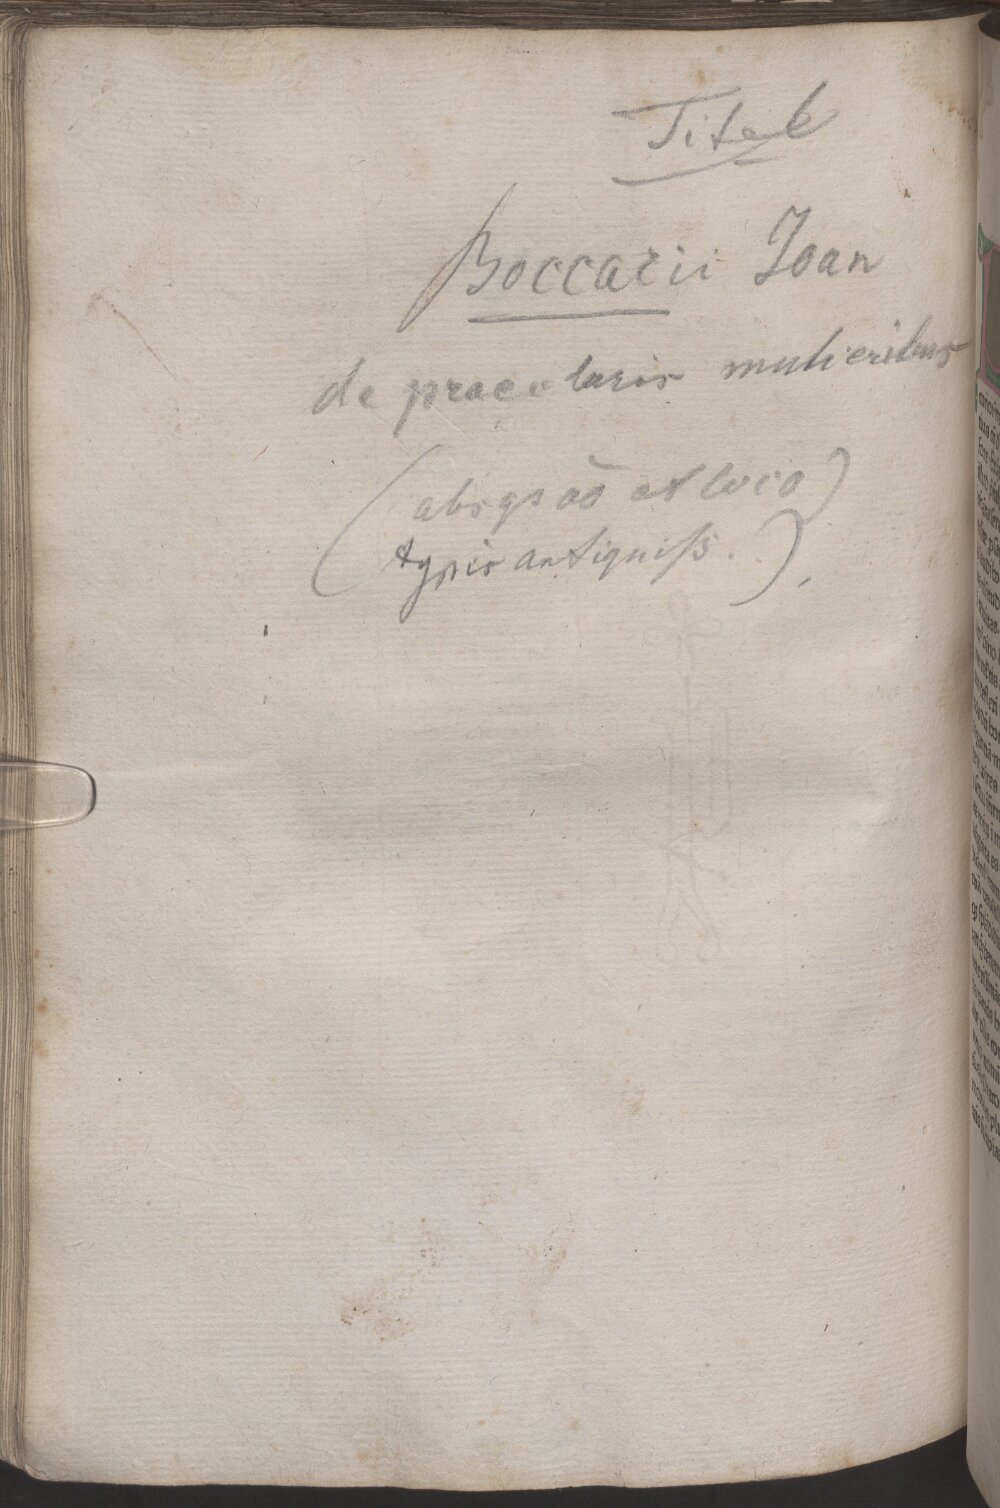 Titel
Boccacii Joan
de praeclaris mulieribus
(absqs aō et loco)
typis antiquiss.),